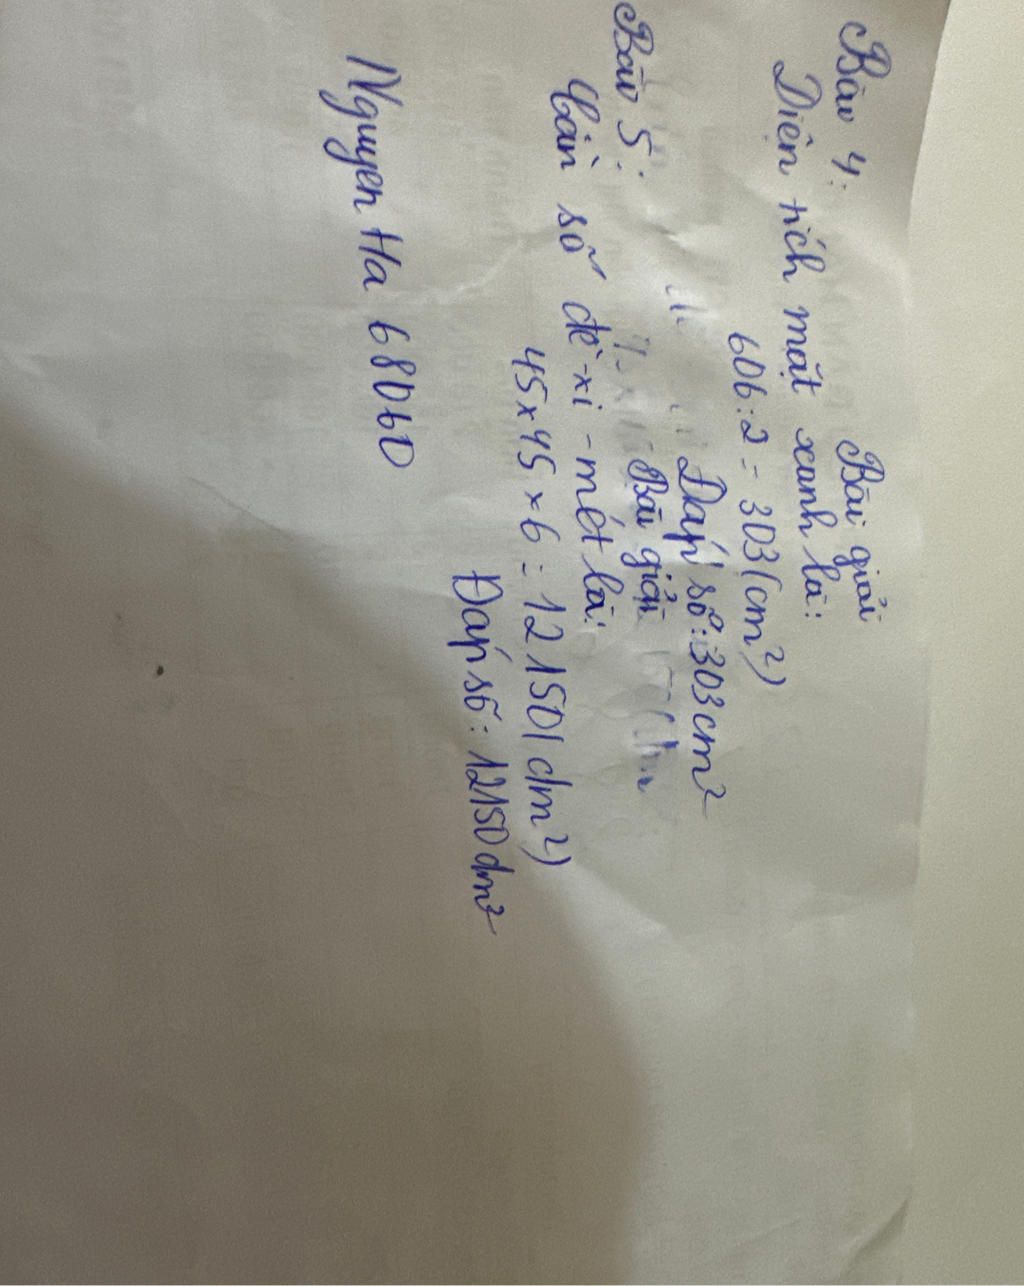 Bài 4:
Bài giải
Diện tích mặt xanh là:
606:2 = 303(cm²)
Đáp số: 303cm²
Bài 5:
Bài giải
Cần số đề-xi-mét là:
45×45×6 = 12150(dm²)
Đáp số: 12150dm²
Nguyen Ha 68060